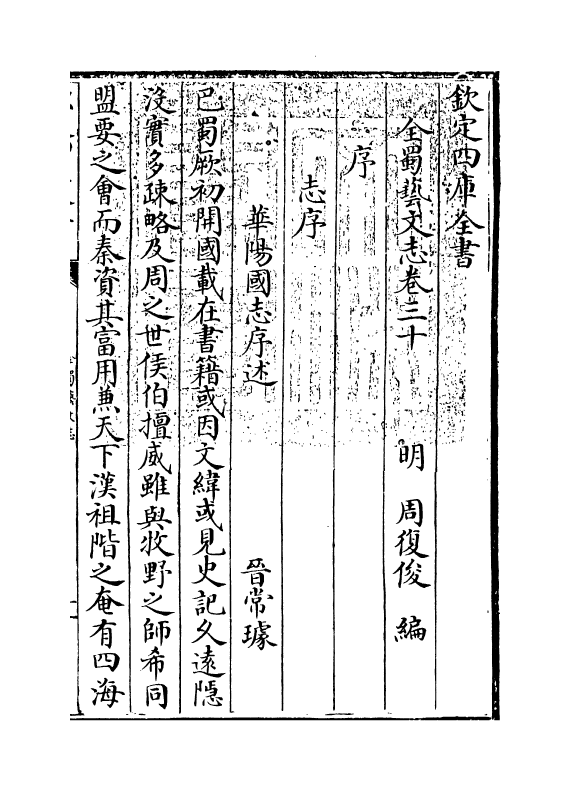 欽定四庫全書
全蜀藝文志卷三十　明　周復俊　編
序
志序
華陽國志序述　晉常璩
巴蜀厥初開國載在書籍或因文緯或見史記久遠隠
没實多疎略及周之世侯伯擅威雖與牧野之師希同
盟要之會而秦資其富用兼天下漢祖階之奄有四海